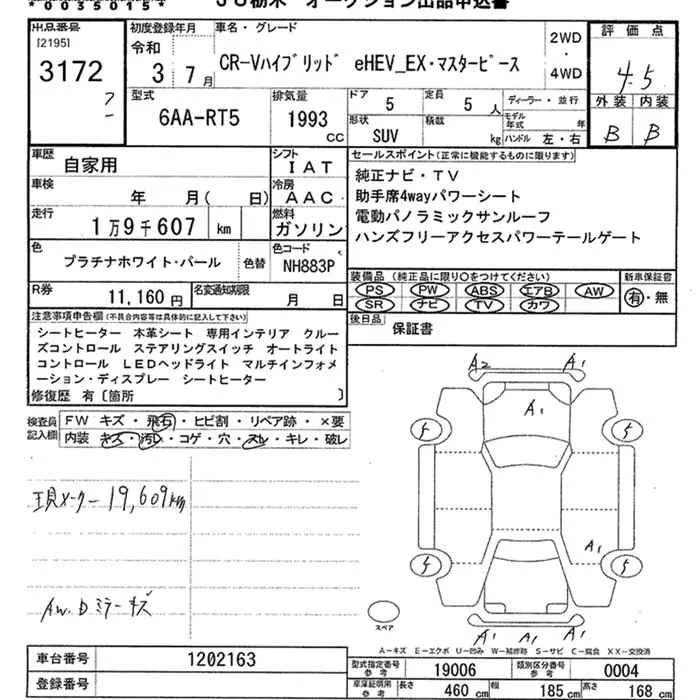 *0055015*
JU栃木 オークション出品申込書
出品番号
[2195]
3172
初度登録年月
令和
3 7月
車名・グレード
CR-Vハイブリッド eHEV_EX・マスターピース
2WD
・
4WD
評価点
4.5
外装 内装
B B
型式
6AA-RT5
排気量
1993 cc
ドア
5
定員
5 人
形状
SUV
積載
kg
ディーラー・並行
モデル年式 年
ハンドル 左・右
車歴
自家用
シフト
IAT
車検
年 月( 日)
冷房
AAC
走行
1万9千607 km
燃料
ガソリン
色
プラチナホワイト・パール
色替
色コード
NH883P
R券
11,160円
名変通知期限
月 日
セールスポイント(正常に機能するものに限ります)
純正ナビ・TV
助手席4wayパワーシート
電動パノラミックサンルーフ
ハンズフリーアクセスパワーテールゲート
装備品(純正品に限り○をつけてください)
PS PW ABS エアB AW
SR ナビ TV カワ
新車保証書
有・無
後日品
保証書
注意事項申告欄(不具合内容等は具体的に記入して下さい)
シートヒーター 本革シート 専用インテリア クルー
ズコントロール ステアリングスイッチ オートライト
コントロール LEDヘッドライト マルチインフォメ
ーション・ディスプレー シートヒーター
修復歴 有〔箇所 〕
検査員記入欄
FW キズ・飛石・ヒビ割・リペア跡・×要
内装 キズ・汚レ・コゲ・穴・スレ・キレ・破レ
現メーター 19,609km
AW.Dミラーキズ
A2 A1
A1
5 5
A1
5 5
A1 A1 A1
スペア
A−キズ E−エクボ U−凹み W−補修跡 S−サビ C−腐食 XX−交換済
車台番号
1202163
登録番号
型式指定番号
参考
19006
類別区分番号
参考
0004
車庫証明用
参考
長さ 460 cm
幅 185 cm
高さ 168 cm